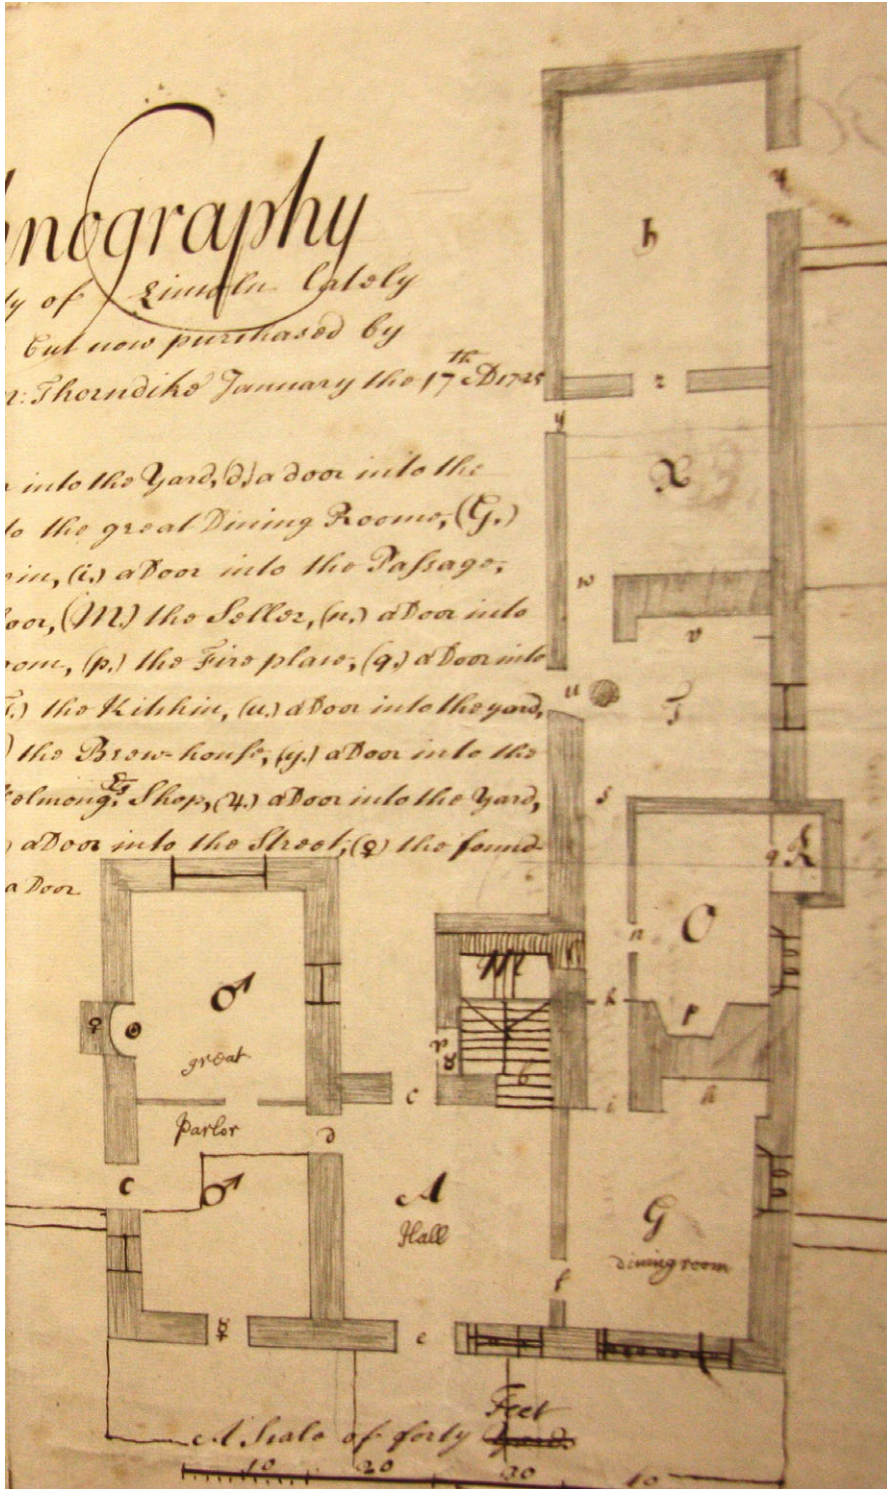 nography
ty of Lincoln lately
but now purchased by
Thorndike January the 17th AD 1725
into the Yard, (d.) a door into the
to the great Dining Roome, (G.)
in, (i.) a Door into the Passage,
oor, (M.) the Seller, (n.) a Door into
oom, (p.) the Fire place, (q.) a Door into
the Kitchin, (u.) a Door into the yard,
the Brew-house, (y.) a Door into the
Shop, (4.) a Door into the Yard,
a Door into the Street, (♀) the found
a Door
4
h
z
y
X
w
v
u
T
s
q
R
O
n
M
♂
great
♀
☉
p
k
b
c
i
h
Parlor
d
c
♂
A
Hall
G
dining room
f
☿
e
A Scale of forty Feet Yards
10 20 30 40